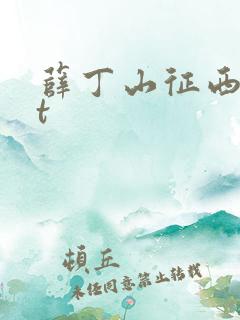 薛丁山征西
t
顿丘
未经同意禁止转载